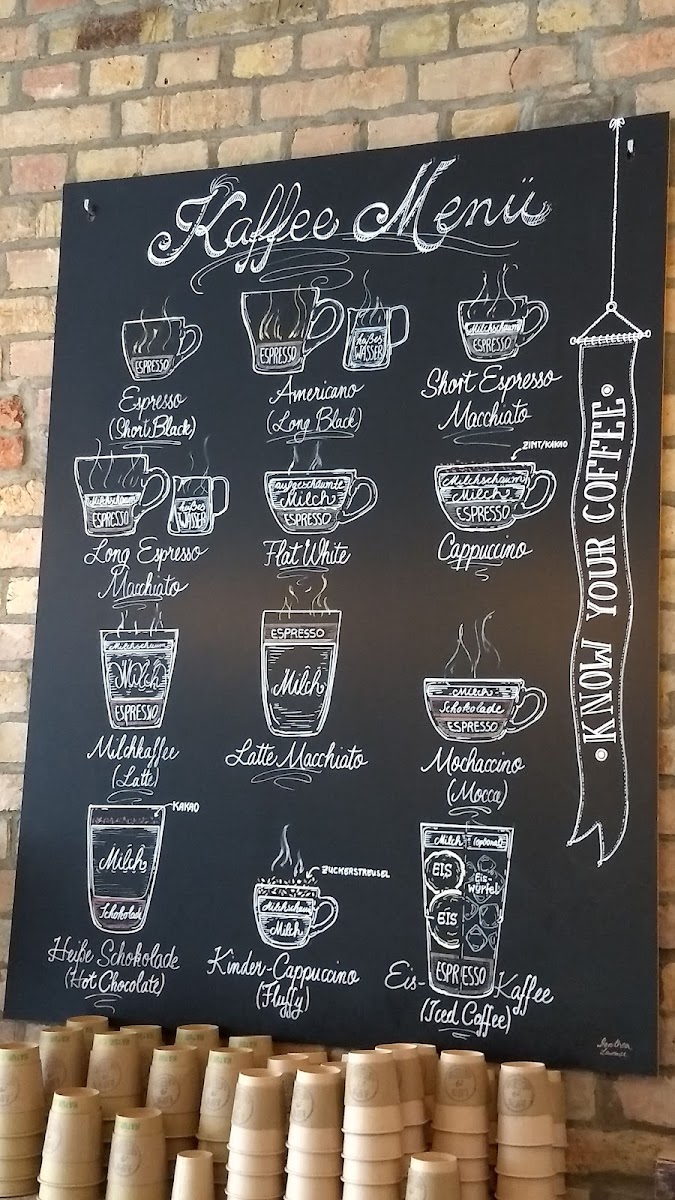 Kaffee Menü
ESPRESSO
Espresso
(Short Black)
ESPRESSO
heißes
WASSER
Americano
(Long Black)
Milchschaum
ESPRESSO
Short Espresso
Macchiato
Milchschaum
ESPRESSO
heißes
WASSER
Long Espresso
Macchiato
aufgeschäumte
Milch
ESPRESSO
Flat White
ZIMT/KAKAO
Milchschaum
Milch
ESPRESSO
Cappuccino
Milchschaum
Milch
ESPRESSO
Milchkaffee
(Latte)
ESPRESSO
Milch
Latte Macchiato
Milch
Schokolade
ESPRESSO
Mochaccino
(Mocca)
KAKAO
Milch
Schokolade
Heiße Schokolade
(Hot Chocolate)
ZUCKERSTREUSEL
Milchschaum
Milch
Kinder-Cappuccino
(Fluffy)
Milch (optional)
EIS
EIS
Eis-
Würfel
ESPRESSO
Eis-Kaffee
(Iced Coffee)
• KNOW YOUR COFFEE •